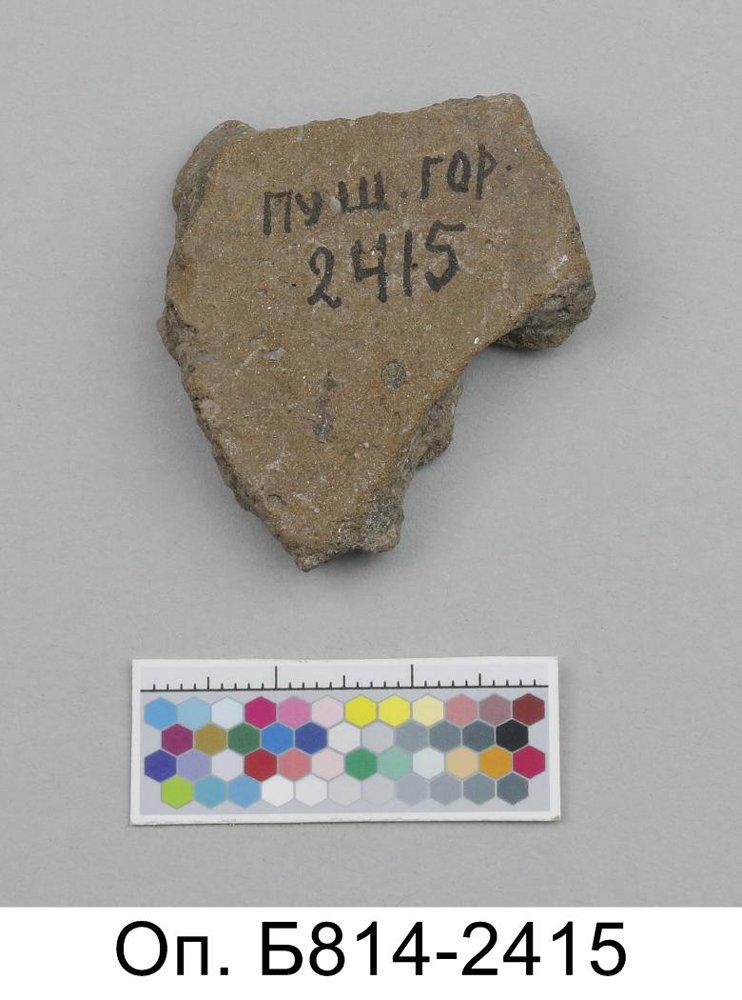 ПУШ. ГОР.
2415
Оп. Б814-2415